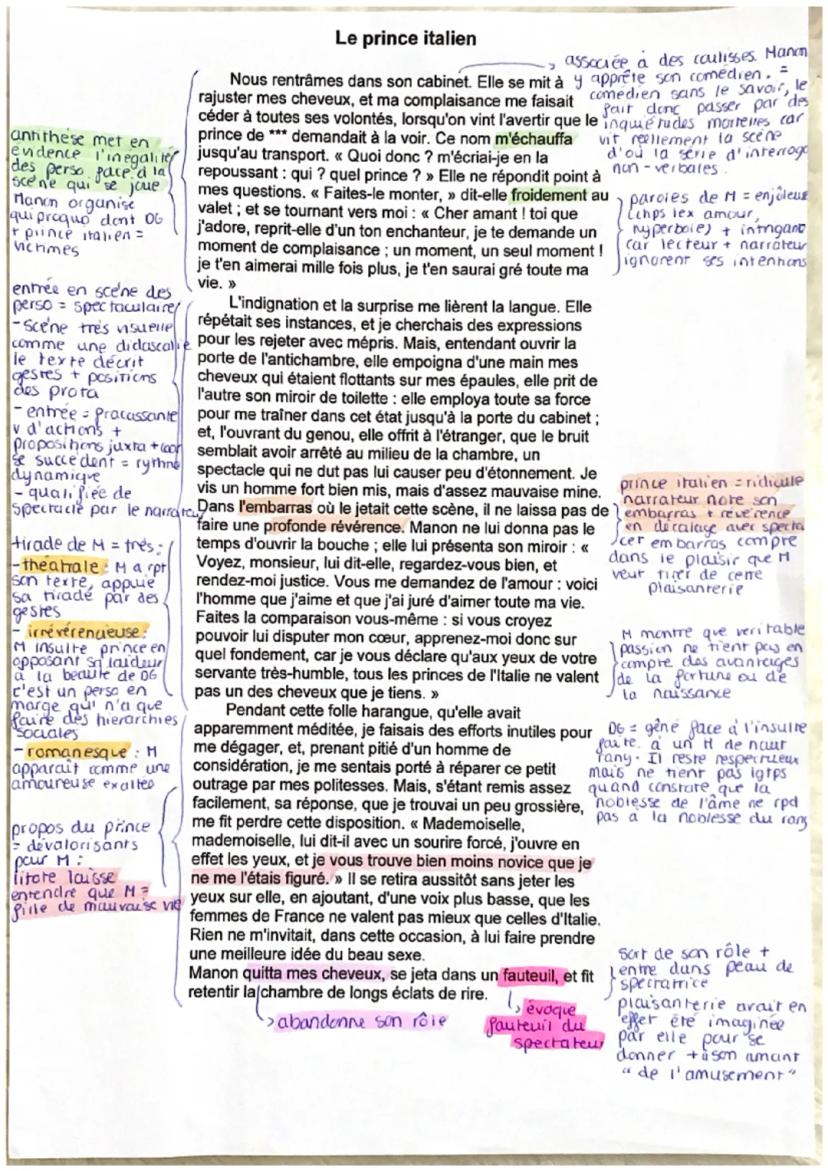 Le prince italien
associée à des coulisses. Manon
y apprête son comédien. =
comédien sans le savoir, le
fait donc passer par des
inquiétudes mortelles car
vit réellement la scène
d'où la série d'interrog
non-verbales.
Nous rentrâmes dans son cabinet. Elle se mit à
rajuster mes cheveux, et ma complaisance me faisait
céder à toutes ses volontés, lorsqu'on vint l'avertir que le
prince de *** demandait à la voir. Ce nom m'échauffa
jusqu'au transport. « Quoi donc ? m'écriai-je en la
repoussant : qui ? quel prince ? » Elle ne répondit point à
mes questions. « Faites-le monter, » dit-elle froidement au
valet ; et se tournant vers moi : « Cher amant ! toi que
j'adore, reprit-elle d'un ton enchanteur, je te demande un
moment de complaisance ; un moment, un seul moment !
je t'en aimerai mille fois plus, je t'en saurai gré toute ma
vie. »
antithèse met en
évidence l'inégalité
des perso face à la
scène qui se joue
Manon organise
quiproquo dont DG
+ prince italien =
victimes
paroles de M = enjôleus
(chps lex amour,
hyperbole) + intrigant
car lecteur + narrateur
ignorent ses intentions
L'indignation et la surprise me lièrent la langue. Elle
répétait ses instances, et je cherchais des expressions
pour les rejeter avec mépris. Mais, entendant ouvrir la
porte de l'antichambre, elle empoigna d'une main mes
cheveux qui étaient flottants sur mes épaules, elle prit de
l'autre son miroir de toilette : elle employa toute sa force
pour me traîner dans cet état jusqu'à la porte du cabinet ;
et, l'ouvrant du genou, elle offrit à l'étranger, que le bruit
semblait avoir arrêté au milieu de la chambre, un
spectacle qui ne dut pas lui causer peu d'étonnement. Je
vis un homme fort bien mis, mais d'assez mauvaise mine.
Dans l'embarras où le jetait cette scène, il ne laissa pas de
faire une profonde révérence. Manon ne lui donna pas le
temps d'ouvrir la bouche ; elle lui présenta son miroir : «
Voyez, monsieur, lui dit-elle, regardez-vous bien, et
rendez-moi justice. Vous me demandez de l'amour : voici
l'homme que j'aime et que j'ai juré d'aimer toute ma vie.
Faites la comparaison vous-même : si vous croyez
pouvoir lui disputer mon cœur, apprenez-moi donc sur
quel fondement, car je vous déclare qu'aux yeux de votre
servante très-humble, tous les princes de l'Italie ne valent
pas un des cheveux que je tiens. »
entrée en scène des
perso = spectaculaire
- scène très visuelle
comme une didascalie
le texte décrit
gestes + positions
des prota
- entrée = fracassante
v d'actions +
propositions juxta + coor
se succèdent = rythme
dynamique
- qualifiée de
spectacle par le narrateur
prince italien = ridicule
narrateur note son
embarras + révérence
en décalage avec specta
cet embarras compte
dans le plaisir que M
veut tirer de cette
plaisanterie
tirade de M = très :
- théatrale : M a rpt
son texte, appuie
sa tirade par des
gestes
- irrévérencieuse :
M insulte prince en
opposant sa laideur
à la beauté de DG
c'est un perso en
marge qui n'a que
faire des hierarchies
sociales
- romanesque : M
apparaît comme une
amoureuse exaltée
M montre que veritable
passion ne tient pas en
compte des avantages
de la fortune ou de
la naissance
Pendant cette folle harangue, qu'elle avait
apparemment méditée, je faisais des efforts inutiles pour
me dégager, et, prenant pitié d'un homme de
considération, je me sentais porté à réparer ce petit
outrage par mes politesses. Mais, s'étant remis assez
facilement, sa réponse, que je trouvai un peu grossière,
me fit perdre cette disposition. « Mademoiselle,
mademoiselle, lui dit-il avec un sourire forcé, j'ouvre en
effet les yeux, et je vous trouve bien moins novice que je
ne me l'étais figuré. » Il se retira aussitôt sans jeter les
yeux sur elle, en ajoutant, d'une voix plus basse, que les
femmes de France ne valent pas mieux que celles d'Italie.
Rien ne m'invitait, dans cette occasion, à lui faire prendre
une meilleure idée du beau sexe.
DG = gêné face à l'insulte
faite à un H de haut
rang. Il reste respectueux
mais ne tient pas lgtps
quand constate que la
noblesse de l'âme ne rpd
pas à la noblesse du rang
propos du prince
= dévalorisants
pour M :
litote laisse
entendre que M =
fille de mauvaise vie
Manon quitta mes cheveux, se jeta dans un fauteuil, et fit
retentir la chambre de longs éclats de rire.
abandonne son rôle
évoque
fauteuil du
spectateur
sort de son rôle +
entre dans peau de
spectatrice
plaisanterie avait en
effet été imaginée
par elle pour se
donner + à son amant
"de l'amusement"